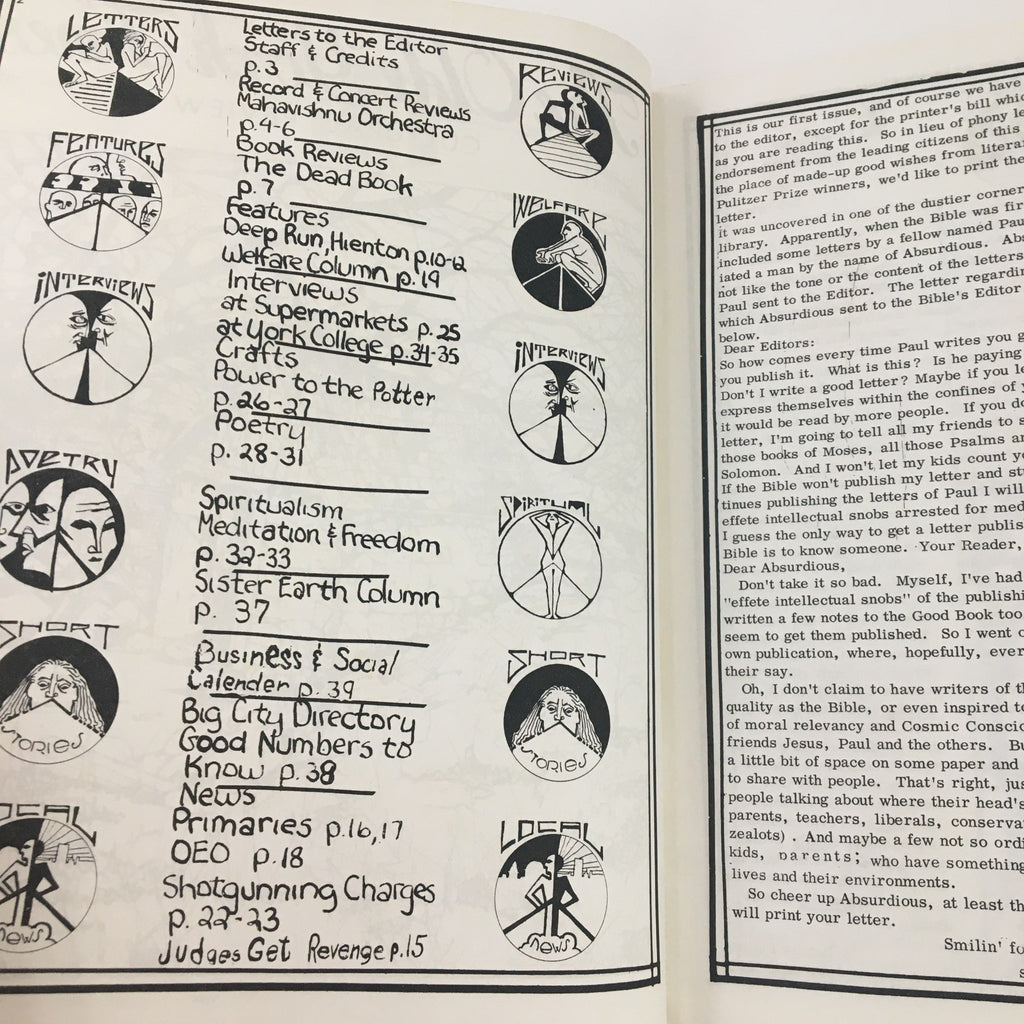 2
LETTERS
FEATURES
INTERVIEWS
POETRY
SHORT
STORIES
LOCAL
NEWS
Letters to the Editor
Staff & Credits
p.3
Record & Concert Reviews
Mahavishnu Orchestra
p.4-6
Book Reviews
The Dead Book
p.7
Features
Deep Run, Hienton p.10-12
Welfare Column p.19
Interviews
at Supermarkets p.25
at York College p.34-35
Crafts
Power to the Potter
p.26-27
Poetry
p. 28-31
Spiritualism
Meditation & Freedom
p. 32-33
Sister Earth Column
p. 37
Business & Social
Calender p. 39
Big City Directory
Good Numbers to
Know p.38
News
Primaries p.16,17
OEO p.18
Shotgunning Charges
p. 22-23
Judges Get Revenge p.15
REVIEWS
WELFARE
INTERVIEWS
SPIRITUAL
SHORT
STORIES
LOCAL
NEWS
This is our first issue, and of course we have
to the editor, except for the printer's bill
as you are reading this. So in lieu of phony
endorsement from the leading citizens of this
the place of made-up good wishes from
Pulitzer Prize winners, we'd like to print the
letter.
it was uncovered in one of the dustier
library. Apparently, when the Bible was
included some letters by a fellow named
iated a man by the name of Absurdious.
not like the tone or the content of the letters
Paul sent to the Editor. The letter
which Absurdious sent to the Bible's Editor
below.
Dear Editors:
So how comes every time Paul writes you
you publish it. What is this? Is he paying
Don't I write a good letter? Maybe if you
express themselves within the confines of
it would be read by more people. If you
letter, I'm going to tell all my friends to
those books of Moses, all those Psalms
Solomon. And I won't let my kids count
If the Bible won't publish my letter and
tinues publishing the letters of Paul I will
effete intellectual snobs arrested for
I guess the only way to get a letter
Bible is to know someone. Your Reader,
Dear Absurdious,
Don't take it so bad. Myself, I've had
"effete intellectual snobs" of the
written a few notes to the Good Book too
seem to get them published. So I went
own publication, where, hopefully,
their say.
Oh, I don't claim to have writers of
quality as the Bible, or even inspired
of moral relevancy and Cosmic
friends Jesus, Paul and the others.
a little bit of space on some paper and
to share with people. That's right,
people talking about where their head's
parents, teachers, liberals,
zealots). And maybe a few not so
kids, parents; who have something
lives and their environments.
So cheer up Absurdious, at least
will print your letter.
Smilin'